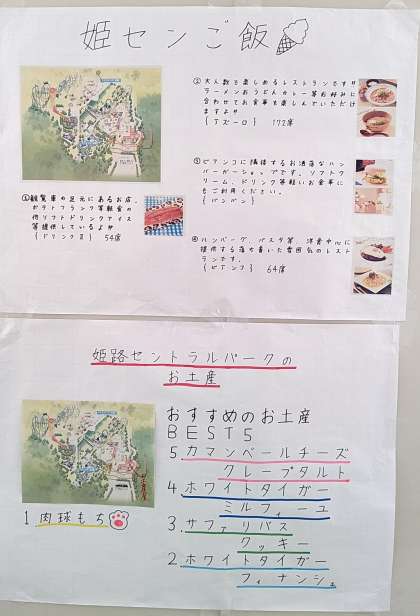 姫センご飯
②大人数で楽しめるレストランです!!
ラーメンおうどんカレー等お好みに
合わせてお食事も楽しんでいただけ
ますよ♡
172席
③ビアンコに隣接するお洒落なハン
バーガーショップです。ソフトクリ
ーム、ドリンク等軽いお食事に
もご利用ください。
(バンバン)
①観覧車の足元にあるお店。
ポテトフランクフルト等軽食の
他ソフトドリンクアイス
等提供しているよ♡
54席
④ハンバーグ、パスタ等、洋食中心に
提供する落ち着いた雰囲気のレスト
ランです。
(ビアンコ) 64席
姫路セントラルパークの
お土産
おすすめのお土産
BEST5
5.カマンベールチーズ
クレープタルト
4.ホワイトタイガー
ミルフィーユ
1肉球もち
3.サファリバス
クッキー
2.ホワイトタイガー
フィナンシェ